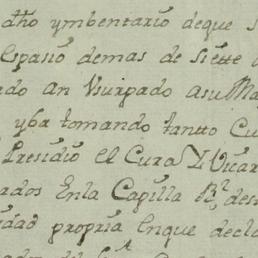 dho ymbentario deque s
Espasio demas de siette
ado an Vsurpado asu Ma
yba tomando tantto Cu
Presidio el Cura Y Vicar
ados Enla Capilla Rl. des
dad propria Enque decla